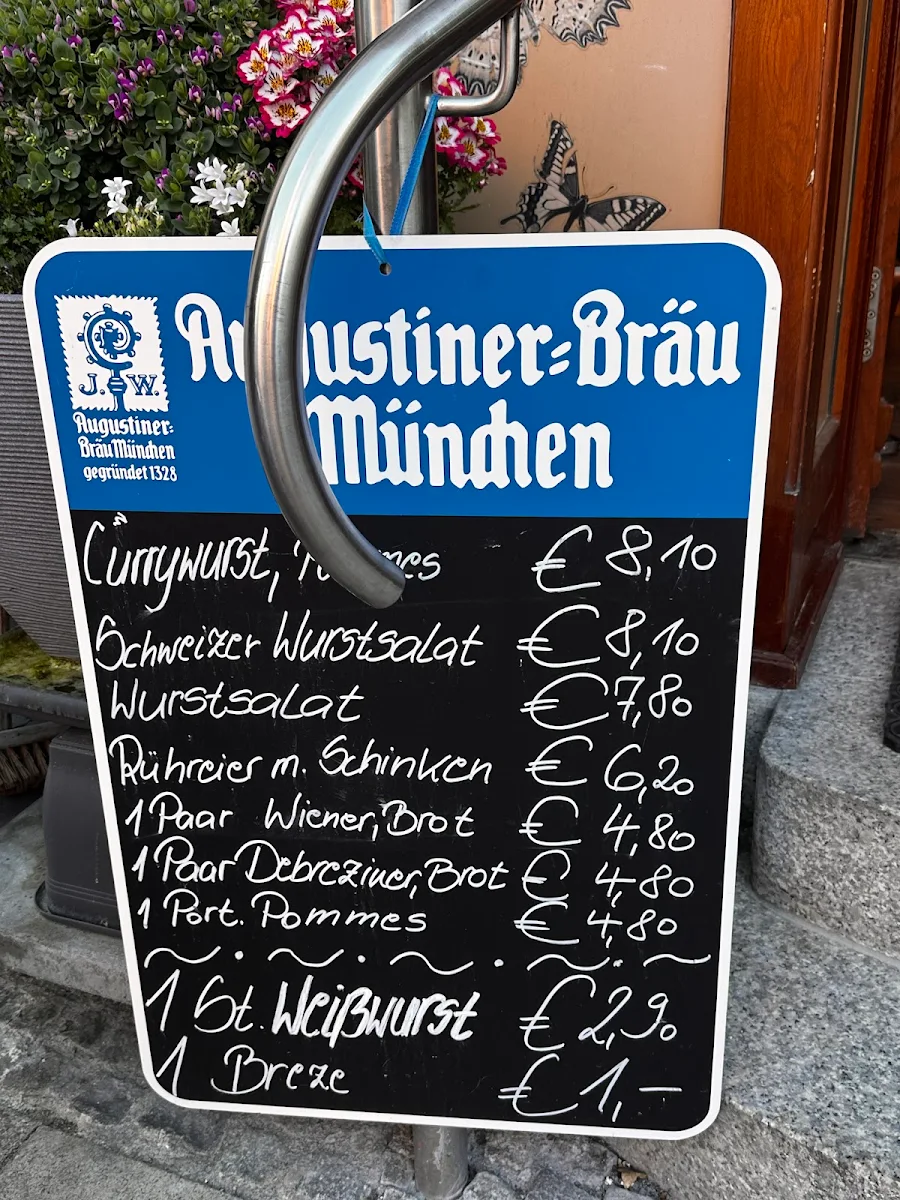 J. W.
Augustiner=
Bräu München
gegründet 1328
Augustiner=Bräu
München
Currywurst, Pommes € 8,10
Schweizer Wurstsalat € 8,10
Wurstsalat € 7,80
Rühreier m. Schinken € 6,20
1 Paar Wiener, Brot € 4,80
1 Paar Debreziner, Brot € 4,80
1 Port. Pommes € 4,80
~ . ~ . ~ . ~ . ~
1 St. Weißwurst € 2,90
1 Breze € 1,-